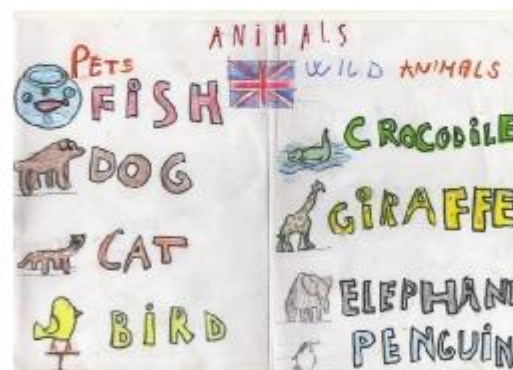 ANIMALS
PETS
FISH
DOG
CAT
BIRD
WILD ANIMALS
CROCODILE
GIRAFFE
ELEPHANT
PENGUIN